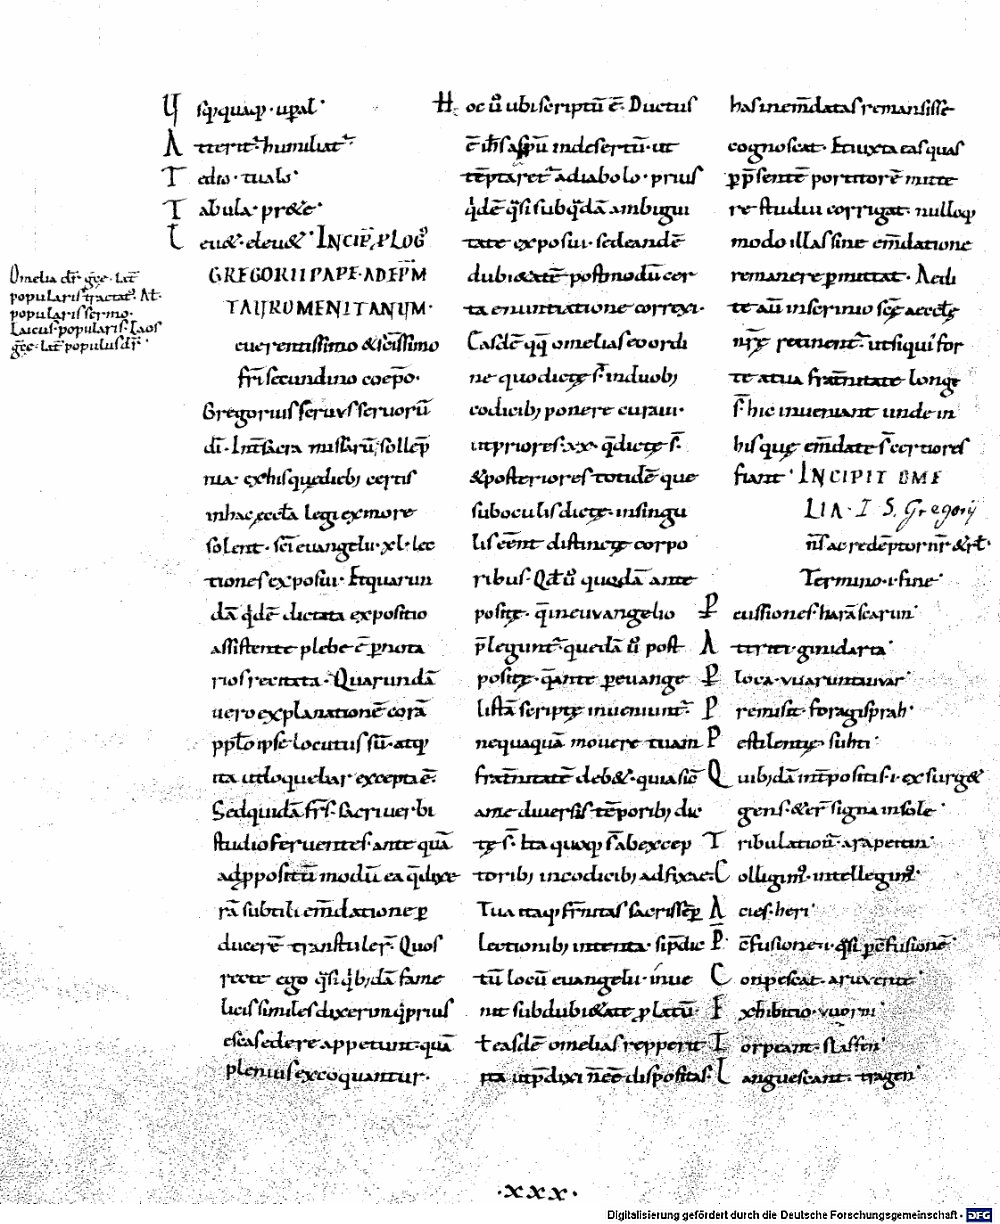 Omelia dr̄ grece. Lat̄
popularis tractat̄. At̄.
popularis sermo.
Laicus popularis. Laos
grece. Lat̄ populus dr̄.
Vsq; quaq; · up̄al·
Atterit̄· humiliat̄·
Tedio · tualo·
Tabula · pr&e·
Leu&· eleu&· INCIP̄ PLOG̃
GREGORII PAPE · AD EP̄M
TAURUMENITANUM·
euerentissimo & sc̄issimo
fr̄i secundino coep̄o·
Gregorius seruus seruorū
dī· Int̄ sacra missarū sollep̄
nia · ex his que dieb; certis
in hac eccl̄a legi ex more
solent · sc̄i euangelii · xl · lec
tiones exposui· Et quarun
dā q̇dē dictata expositio
assistente plebe ē p̄ nota
rios recitata · Quarundā
uero explanationē corā
pp̄lo ipse locutus sū· atq;
ita ut loquebar excepta ē·
Sed quidā fr̄s · sacri uerbi
studio feruentes · ante quā
ad p̄positū modū ea q̄ dixe
rā subtili em̄datione p̄
ducerē transtuler̄· Quos
recte ego q̄si q̇b;dā fame
licis similes dixerim q̇ prius
escas edere appetunt · quā
plenius excoquantur·
Hoc ū ubi scriptū ē· Ductus
ē ih̄s a sp̄u in desertū · ut
tēptaret̄ a diabolo · prius
q̇dē q̄si sub q̄dā ambigui
tate exposui · sed eandē
dubi&atē postmodū cer
ta enuntiatione correxi·
Easdē q̄q; omelias eo ordi
ne quo dicte s̄ in duob;
codicib; ponere curaui·
ut priores · xx · q̄ dicte s̄·
& posteriores totidē que
sub oculis dicte · in singu
lis eēnt distincte corpo
ribus · Qd̄ ū quedā ante
posite · q̄ in euvangelio
p̄ legunt̄· quedā ū post
posite · q̄ ante p̄ euange
listā scripte inueniunt̄·
nequaquā mouere tuam
frat̄nitatē deb&· quia sic̄
a me diuersis tēporib; dic
te s̄· Ita quoq; s̄ ab excep
torib; in codicib; adfixae·
Tua itaq; fr̄nitas sacris sēp̄
lectionib; intenta · si p̄dic
tū locū euangelii inue
nit sub dubi&ate p̄latū·
t̄ easdē omelias repperit
ita ut p̄dixi n̄ eē dispositas·
has inem̄datas remansisse
cognoscat· Et iuxta eas quas
p̄ p̄sentē portitorē mitte
re studui corrigat· nulloq;
modo illas sine em̄datione
remanere p̄mittat· Aedi
te aū in scrinio sc̄e aeccl̄e
nr̄e retinent̄· ut si qui for
te a tua frat̄nitate longe
s̄ hic inueniant unde in
his que em̄date s̄ certiores
fiant· INCIPIT OME
LIA · I S. Gregorij
n̄s ac redēptor nr̄ & rt̄
Termino · i · fine·
Percussiones · harascarun·
Atteri · ginidarta·
Ploca · uuaruntauvar·
Premisit · foragisprah·
Pestilentie · suhti·
Quib;dā int̄positis · i · exsurg&
gens · & er̄ signa in sole·
Tribulation̄· arapeitin·
Colligim̄· intellegim̄·
Acies · heri·
Pēfusione · i · q̄si p̄ēfusionē·
Conpescat · aruuente·
Exhibitio · vuorni·
Torpeant · slaffen·
Languescant · tragen·
·xxx·
Digitalisierung gefördert durch die Deutsche Forschungsgemeinschaft - DFG